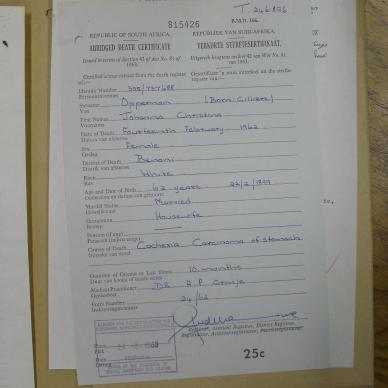 T. 246896
815426
B.M.D. 166.
REPUBLIC OF SOUTH AFRICA. REPUBLIEK VAN SUID-AFRIKA.
ABRIDGED DEATH CERTIFICATE VERKORTE STERFTESERTIFIKAAT.
Issued in terms of Section 42 of Act No. 81 of 1963. Uitgereik kragtens artikel 42 van Wet No. 81 van 1963.
Certified a true extract from the death register of:— Gesertifiseer 'n ware uittreksel uit die sterfteregister van:—
Identity Number 305/737688
Persoonsnommer
Surname Opperman (Born: Cilliers)
Van
First Names Johanna Christina
Voorname
Date of Death Fourteenth February 1962
Datum van afsterwe
Sex Female
Geslag
District of Death Benoni
Distrik van afsterwe
Race White
Ras
Age and Date of Birth 62 years 22/2/1899
Ouderdom en datum van geboorte
Marital Status Married
Huwelikstaat
Occupation Housewife
Beroep
Pension (if any)
Pensioen (indien enige)
Causes of Death Cachexia Carcinoma of stomach
Oorsake van dood
Duration of Disease or Last Illness 10 months
Duur van laaste siekte
Medical Practitioner DR A.P.
Geneesheer
Entry Number 24/62
Inskrywingsnommer
Date
Datum
Registrar, Assistant Registrar, District Registrar.
Registrateur, Assistentregistrateur, Distriksregistrateur.
25c